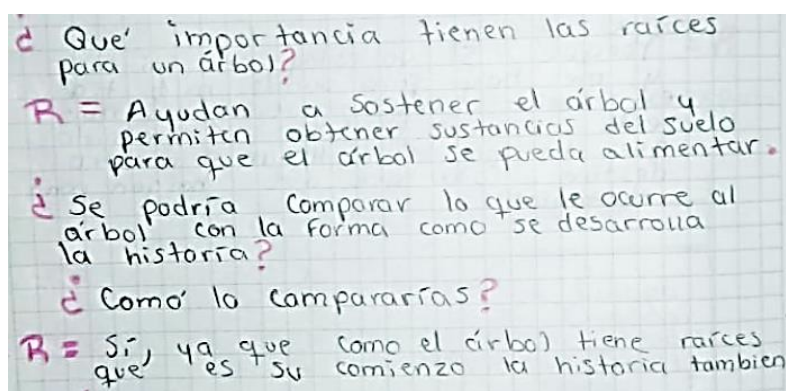 ¿ Qué importancia tienen las raíces
para un árbol?
R = Ayudan a sostener el árbol y
permiten obtener sustancias del suelo
para que el árbol se pueda alimentar.
¿ Se podría comparar lo que le ocurre al
árbol con la forma como se desarrolla
la historia?
¿ Como lo compararías?
R = Sí, ya que como el árbol tiene raíces
que es su comienzo la historia tambien